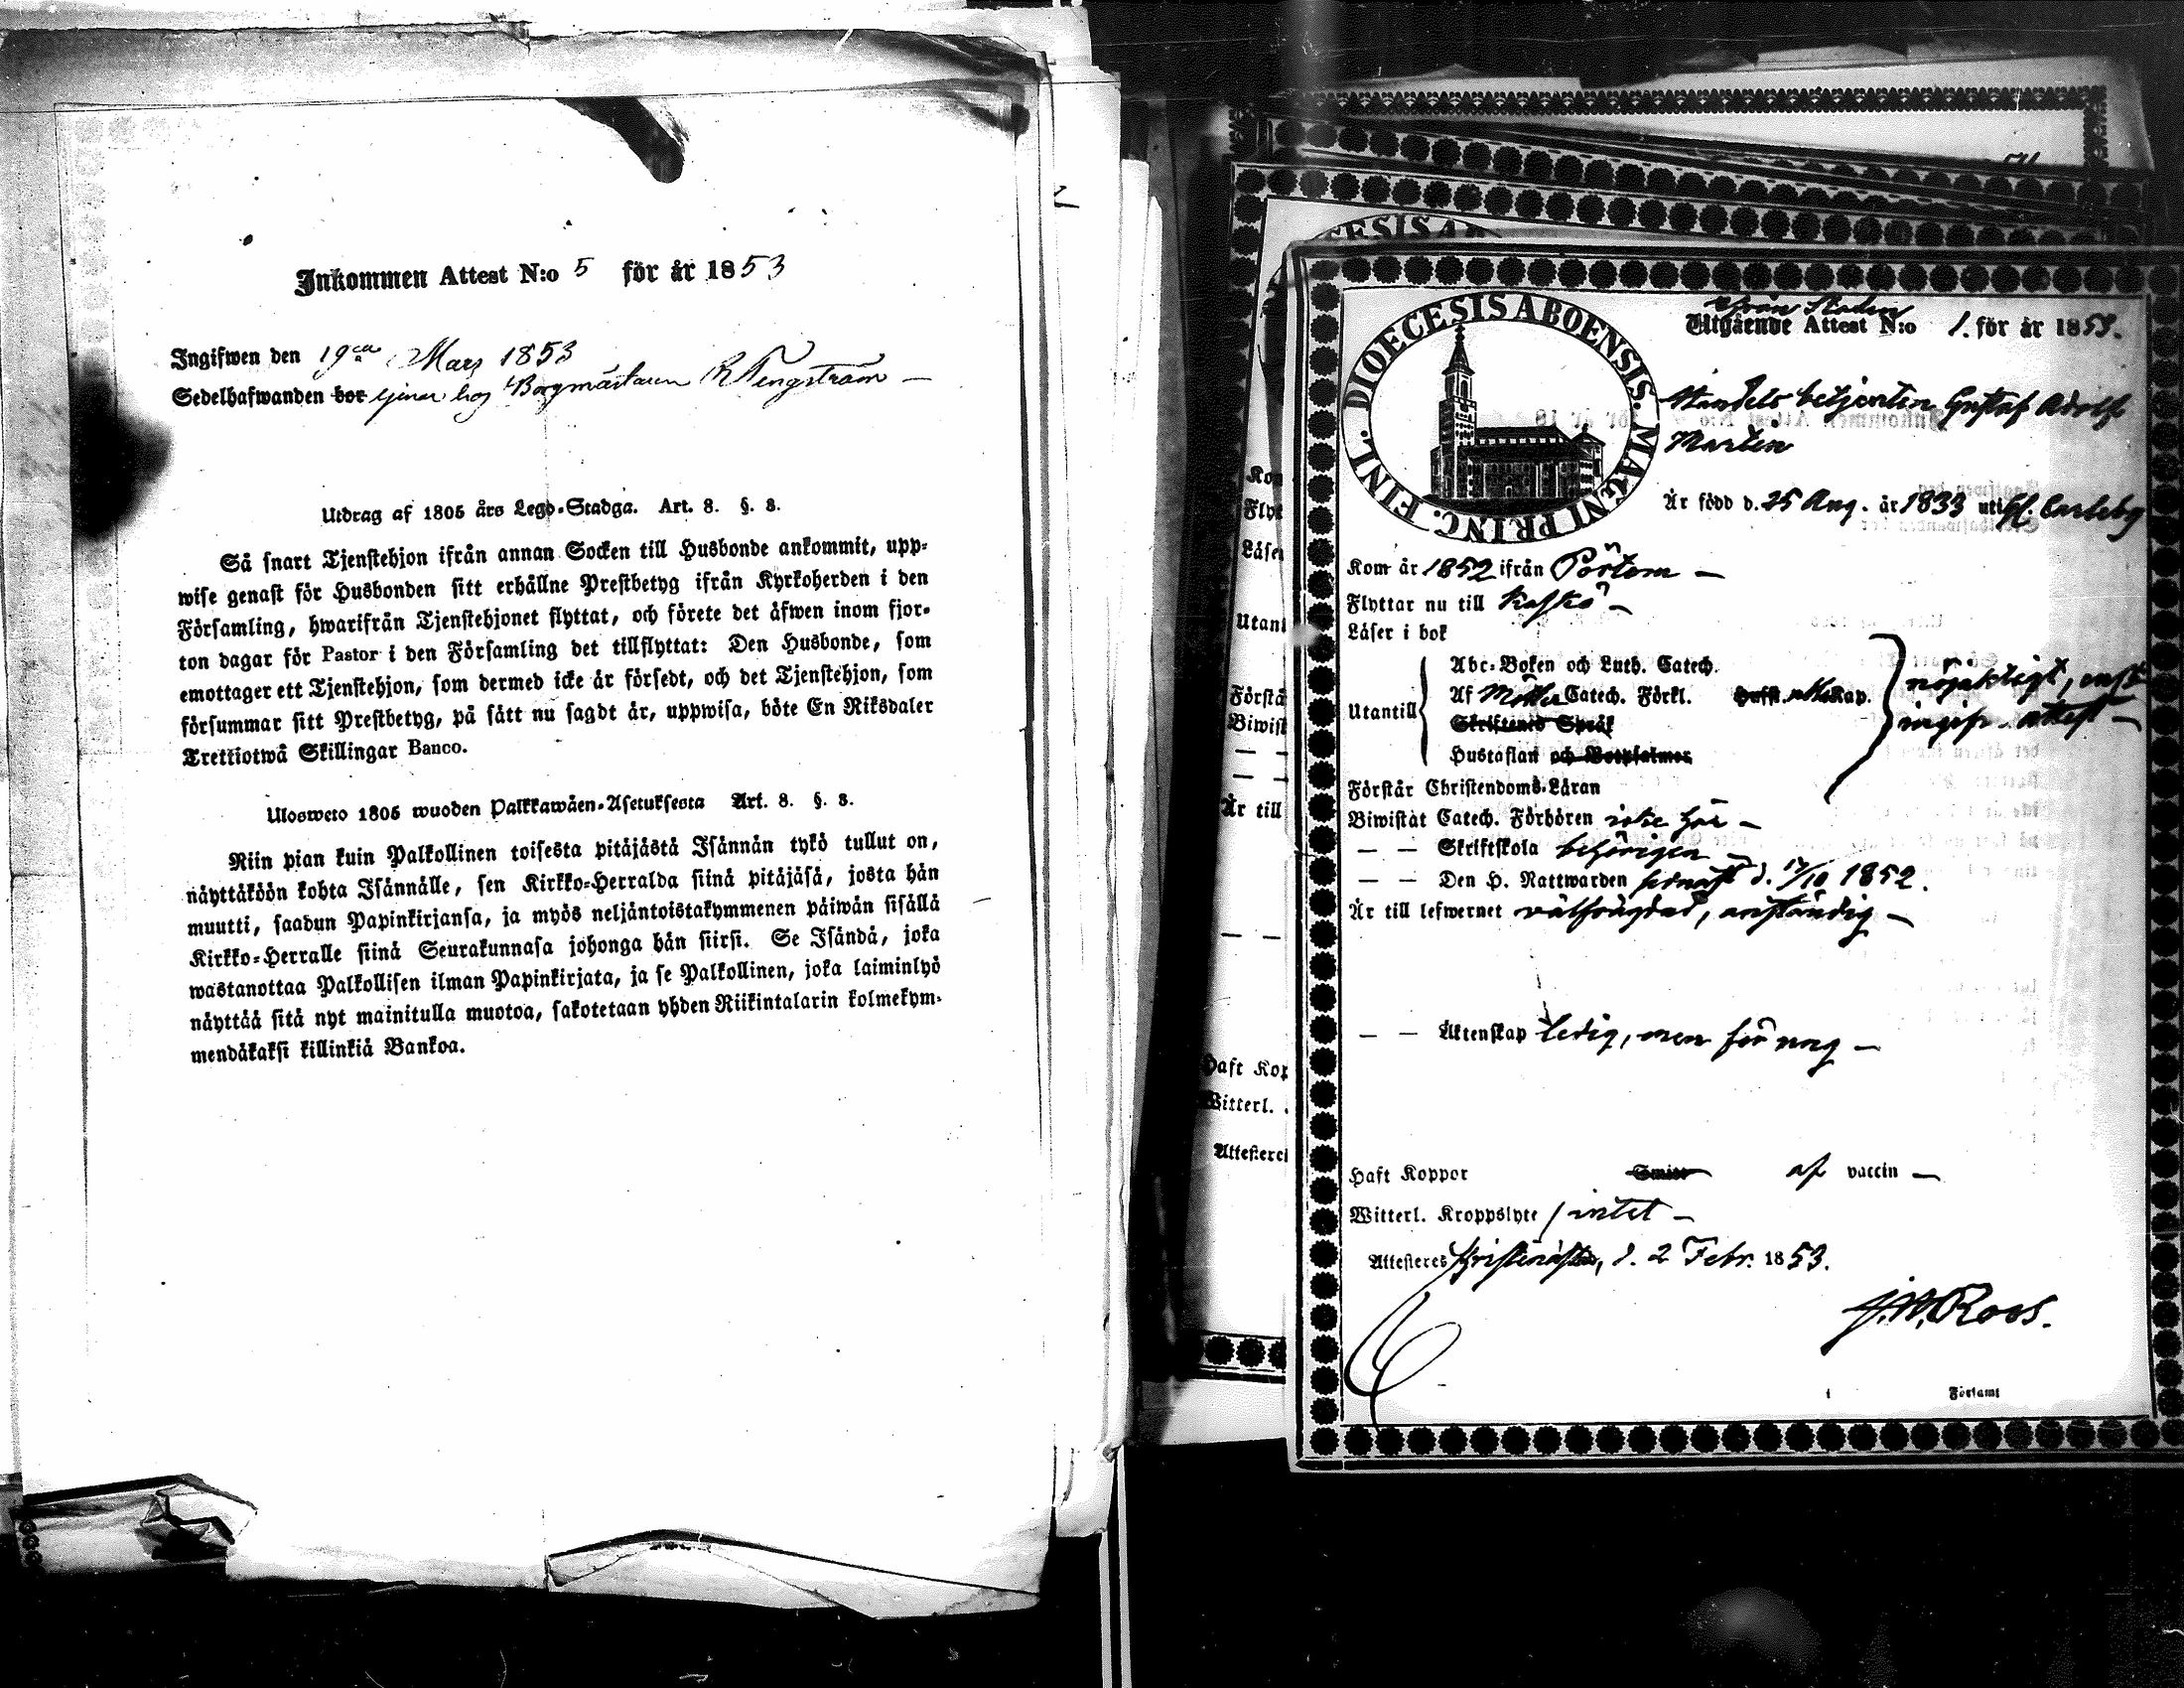 Inkommen Attest N:o 5 för år 1853
Ingifwen den 19de Mars 1853
Sedelhafwanden bor tjenar hos Borgmästaren R Tengström
Utdrag af 1805 års Lego-Stadga. Art. 8. §. 3.
Så snart Tjenstehjon ifrån annan Socken till Husbonde ankommit, upp-
wise genast för Husbonden sitt erhållne Prestbetyg ifrån Kyrkoherden i den
Församling, hwarifrån Tjenstehjonet flyttat, och förete det äfwen inom fjor-
ton dagar för Pastor i den Församling det tillflyttat: Den Husbonde, som
emottager ett Tjenstehjon, som dermed icke är försedt, och det Tjenstehjon, som
försummar sitt Prestbetyg, på sätt nu sagdt är, uppwisa, böte En Riksdaler
Trettiotwå Skillingar Banco.
Ulosweto 1805 wuoden Palkkawäen-Asetuksesta Art. 8. §. 3.
Niin pian kuin Palkollinen toisesta pitäjästä Isännän tykö tullut on,
näyttäköön kohta Isännälle, sen Kirkko-Herralda siinä pitäjäsä, josta hän
muutti, saadun Papinkirjansa, ja myös neljäntoistakymmenen päiwän sisällä
Kirkko-Herralle siinä Seurakunnasa johonga hän siirsi. Se Isändä, joka
wastanottaa Palkollisen ilman Papinkirjata, ja se Palkollinen, joka laiminlyö
näyttää sitä nyt mainitulla muotoa, sakotetaan yhden Riikintalarin kolmekym-
mendäkaksi killinkiä Bankoa.
DIOECESIS ABOENSIS. MAGNI PRINC. FINL.
från Staden
Utgående Attest N:o 1. för år 1853.
Handels betjenten Gustaf Adolf
Martin
Är född d. 25 Aug. år 1833 uti Gl. Carleby
Kom år 1852 ifrån Pörtom
Flyttar nu till Kaskö
Läser i bok
Utantill
Abc-Boken och Luth. Catech.
Af Catech. Förkl.
Skriftenes Språk
Hustaflan och Botpsalmer
nöjaktigt, enl.
ingifv. attest
Förstår Christendoms-Läran
Biwistat Catech. Förhören icke här
— — Skriftskola behörigen
— — Den H. Nattwarden sednast d. 17/10 1852.
Är till lefwernet välfrägdad, anständig
— — Äktenskap Ledig, men för ung
Haft Koppor Smitt af vaccin
Witterl. Kroppslyte intet
Attesteres Kristinestad, d. 2 Febr. 1853.
J. W. Roos.
i Församl
Kom
Flyt
Läse
Utant
Förstå
Biwist
Är till
Haft Kop
Witterl.
Attesterei